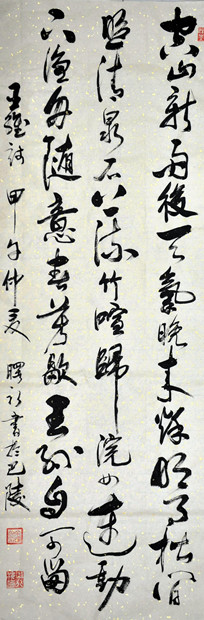 空山新雨後天氣晚来秋明月松間
照清泉石上流竹喧歸浣女蓮動
下漁舟隨意春芳歇王孫自可留
王維詩 甲午仲夏 曙 書於巴陵